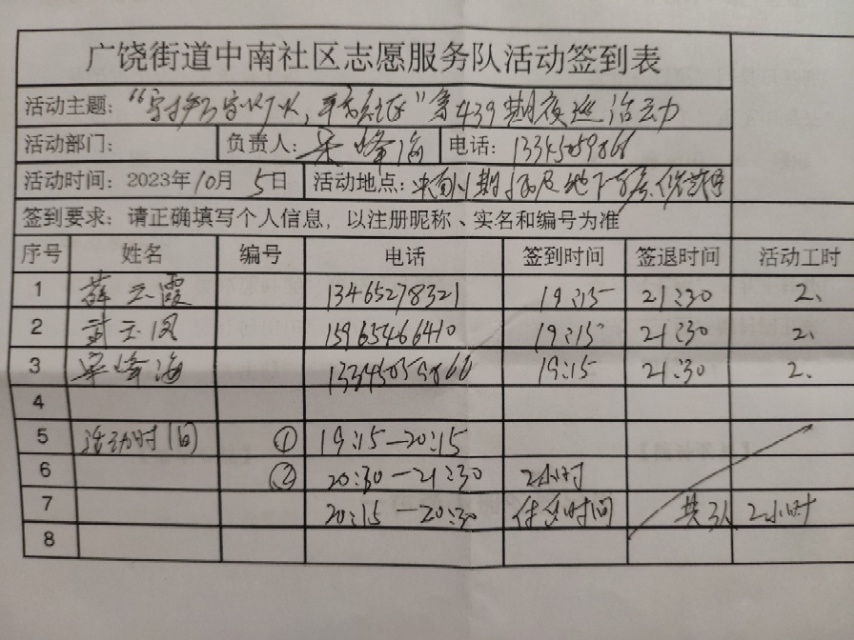 广饶街道中南社区志愿服务队活动签到表
活动主题: 第439期夜巡活动
活动部门: 负责人: 峰海 电话: 13345059866
活动时间: 2023年10月5日 活动地点:
签到要求: 请正确填写个人信息, 以注册昵称、实名和编号为准
序号 姓名 编号 电话 签到时间 签退时间 活动工时
1 薛云霞 13465278321 19:15 21:30 2.
2 武玉凤 15965466410 19:15 21:30 2.
3 峰海 13345059866 19:15 21:30 2.
4
5 活动时间 ① 19:15—20:15
6 ② 20:30—21:30 2小时
7 20:15—20:30 休息时间 共3人 2小时
8